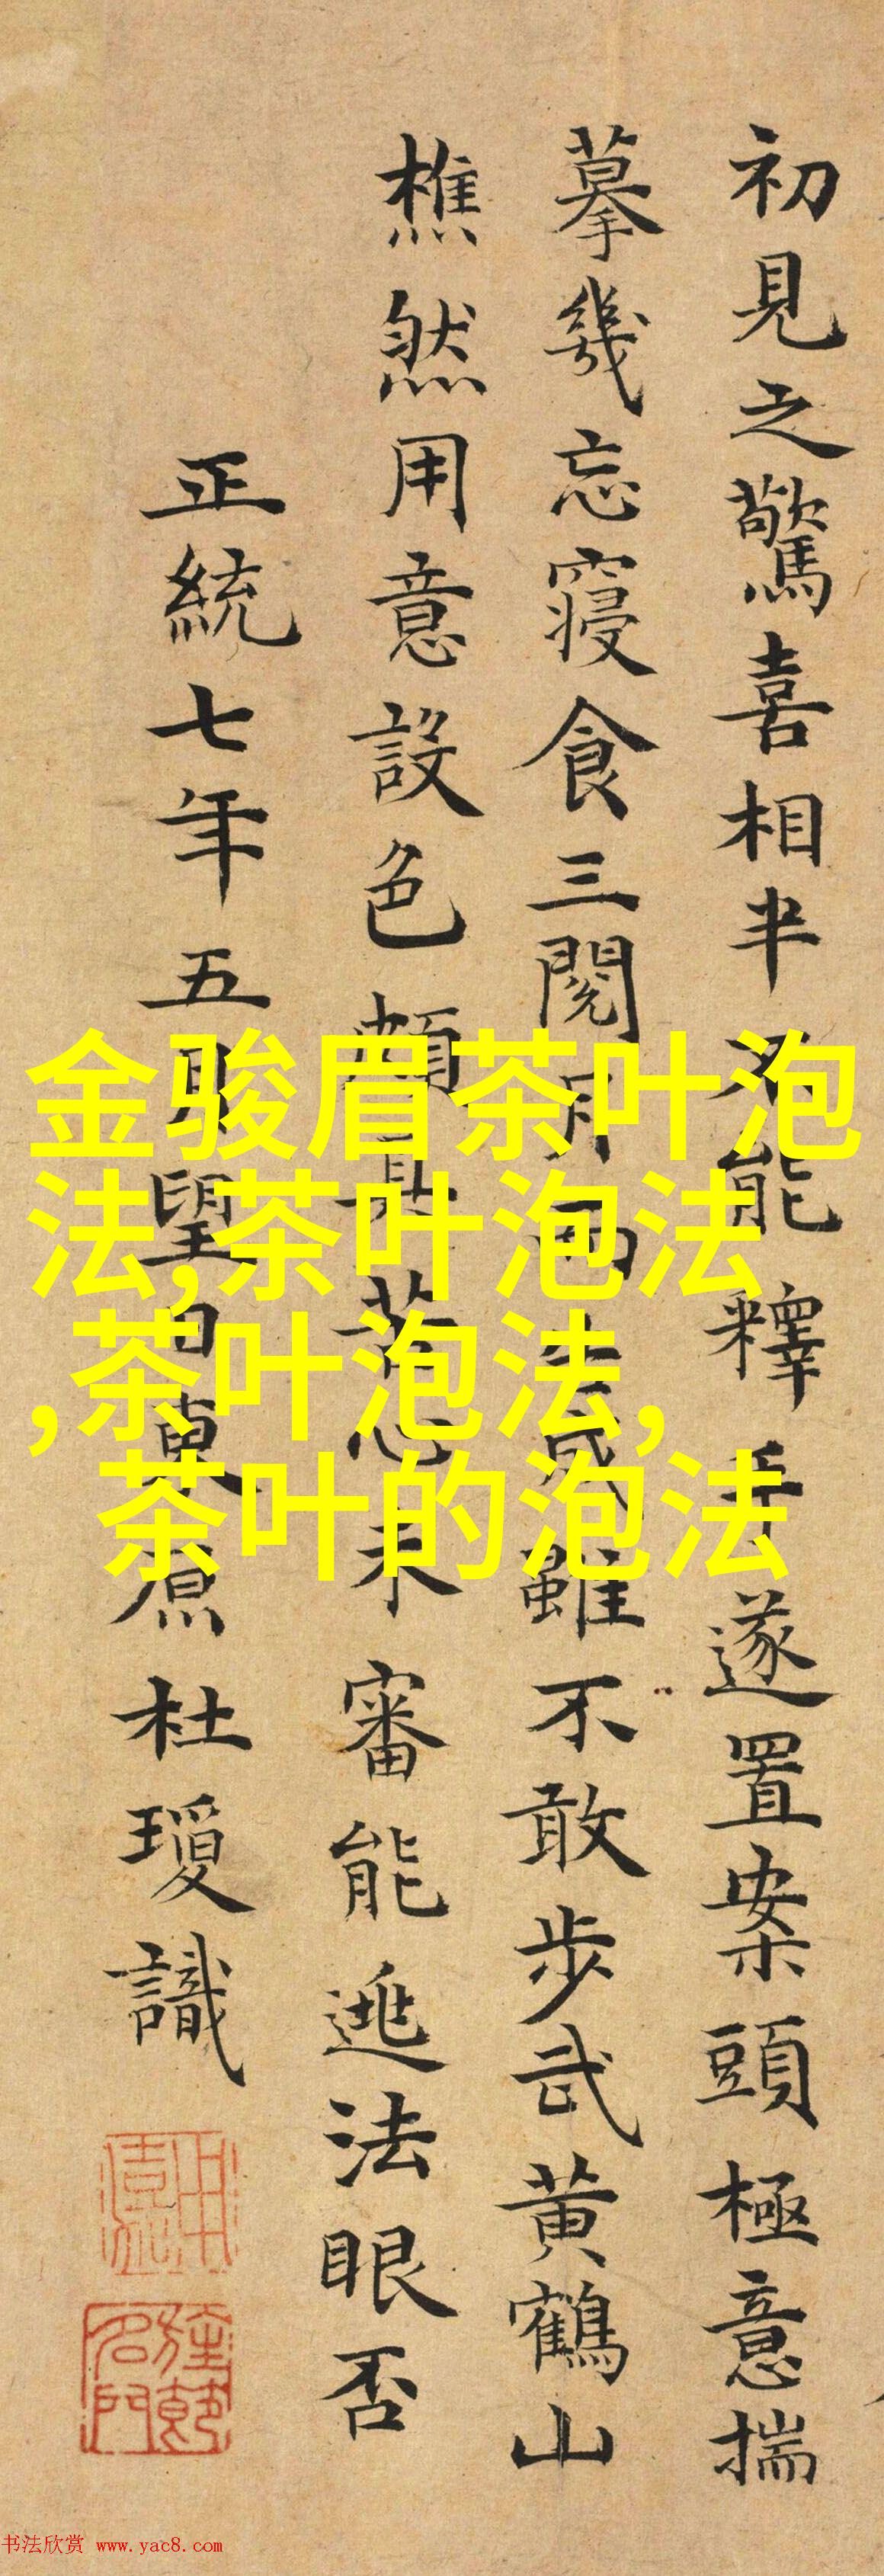 初見之驚喜相半不能釋手遂置案頭極意揣
摹幾忘寢食三閱月而
雖不敢步武黄鶴山
樵然用意設色頗具苦心未審能逃法眼否
正統七年五月望日東原杜瓊識
金骏眉茶叶泡
法,茶叶泡法
,茶叶泡法,
茶叶的泡法
书法欣赏 www.yac8.com